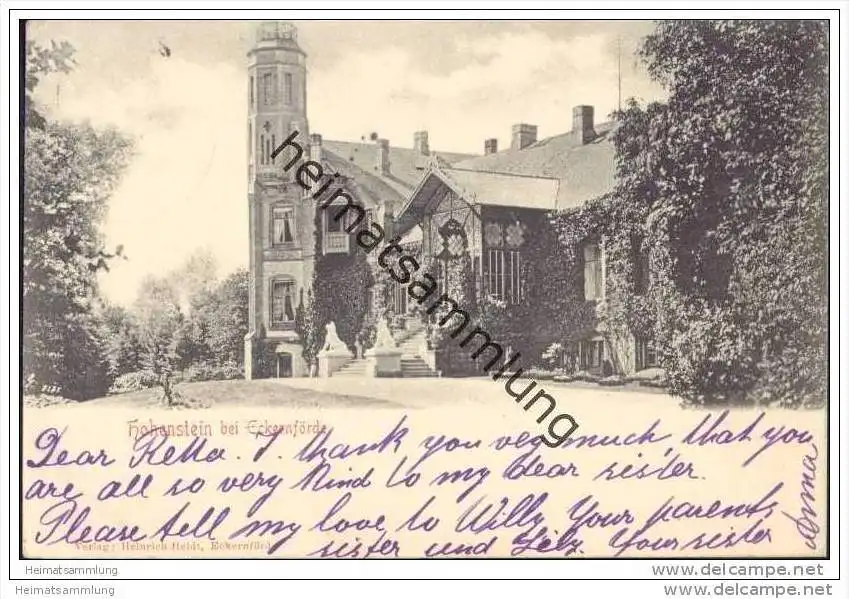 heimatsammlung
Hohenstein bei Eckernförde
Dear Ketta. I. thank you very much, that you
are all so very kind to my dear sister.
Please tell my love to Willy Your parents,
sister und Lily. Your sister
Anna
Verlag: Heinrich Heldt, Eckernförde
Heimatsammlung
Heimatsammlung
www.delcampe.net
www.delcampe.net